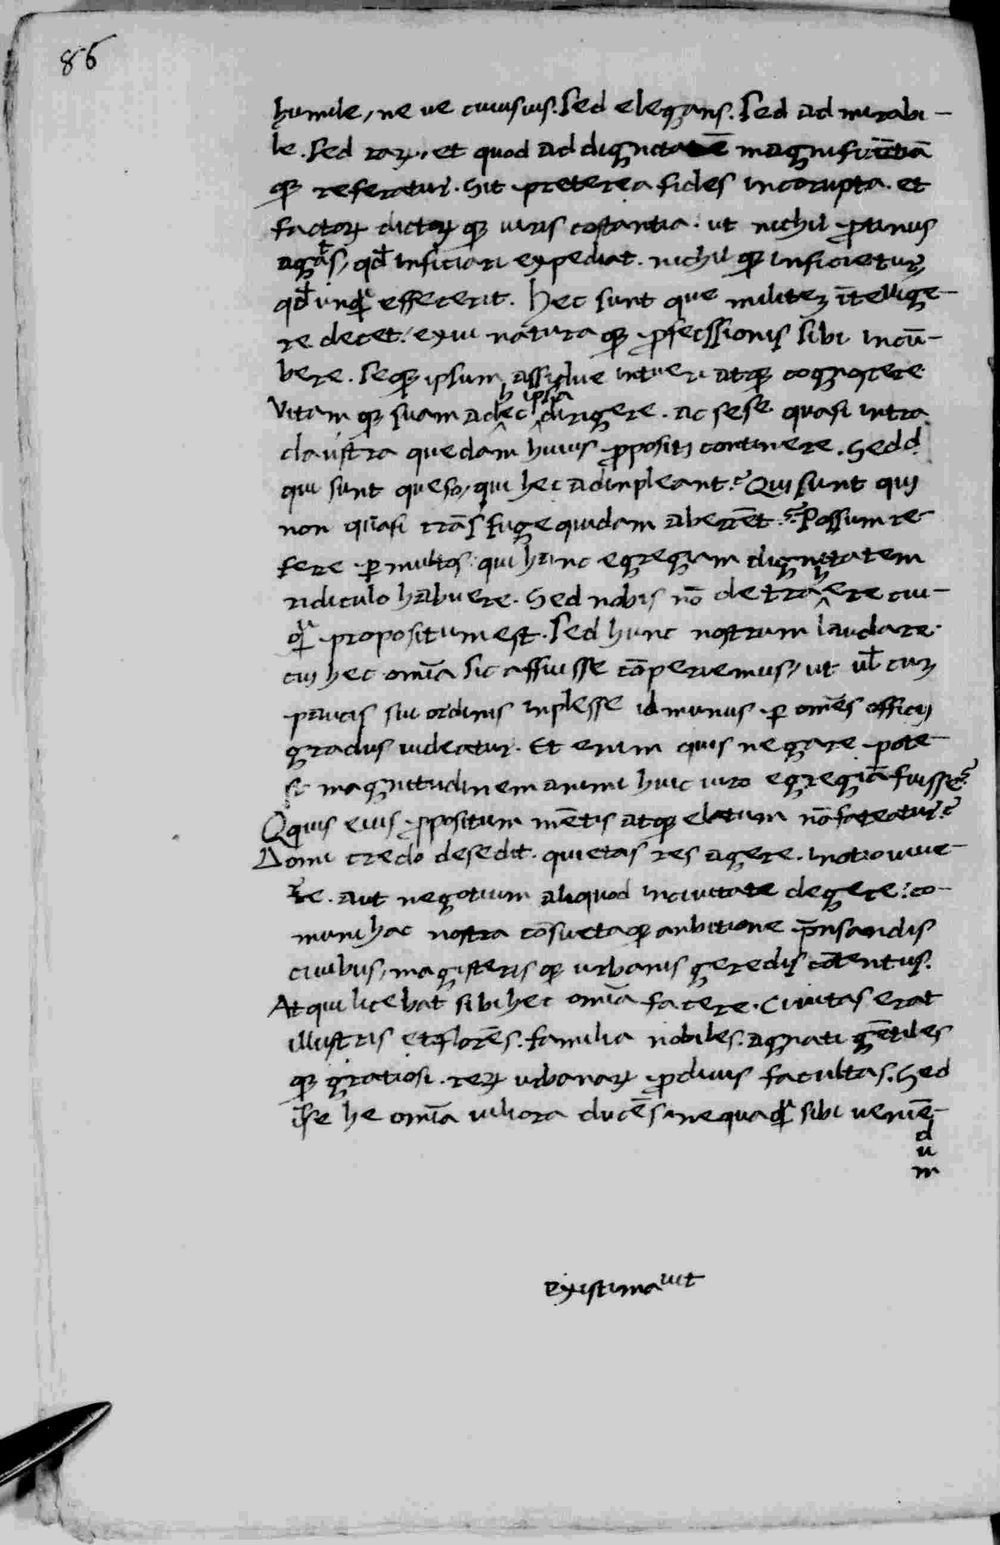 86
humile, ne ve cuiusuis. Sed elegans. Sed admirabi-
le. Sed raꝝ, et quod ad dignitatē magnificētiā
qꝫ referatur. Sit preterea fides incorupta. et
factoꝝ dictoꝝ qꝫ viris cōstantia. ut nichil protinus
agat, qđ inficiari expediat. nichil qꝫ inficietur,
qđ unqᵃ effecerit. Hec sunt que militeꝫ ītellige-
re decet. exui natura qꝫ ꝓfecssionis sibi incū-
bere. Seqꝫ ipsum assidue intueri atqꝫ cognoscere
Vitam qꝫ suam ad hec ipsa dirigere. ac sese quasi intra
claustra quedam huius ꝓpositi continere. Sed
qui sunt queso, qui hec adinpleant? Qui sunt qui
non quasi trāsfuge quidam aberēt? Possum re-
fere ꝑ multos qui hanc egregiam dignitatem
ridiculo habuere. Sed nobis nō detrahere cui-
qᵃ propositum est. Sed hunc nostrum laudare.
cui hec omīa sic affuisse cōperiemus, ut uł cuꝫ
paucis sui ordinis inplesse id munus ꝑ omēs officij
gradus videatur. Et enim quis negare pote-
st magnitudinem animi huic viro egregiā fuisse?
Qquis eius ꝓpositum mētis atqꝫ elatum nō fateatur?
Domi credo desedit. quietas res agere. in otio vive-
re. aut negotium aliquod in civitate degere: co-
muni hac nostra cōsueta qꝫ anbitione pr̄nsandis
civibus, magisteris qꝫ urbanis geredis cōtentus.
At qui licebat sibi hec omīa facere. Civitas erat
illustris et florēs. familia nobiles. agnati gētiles
qꝫ gratiosi. reꝝ urbanaꝝ ꝓclivis facultas. Sed
ip̄e he omīa viliora ducēs nequaqᵃ sibi veniē-
d
u
m
existimavit